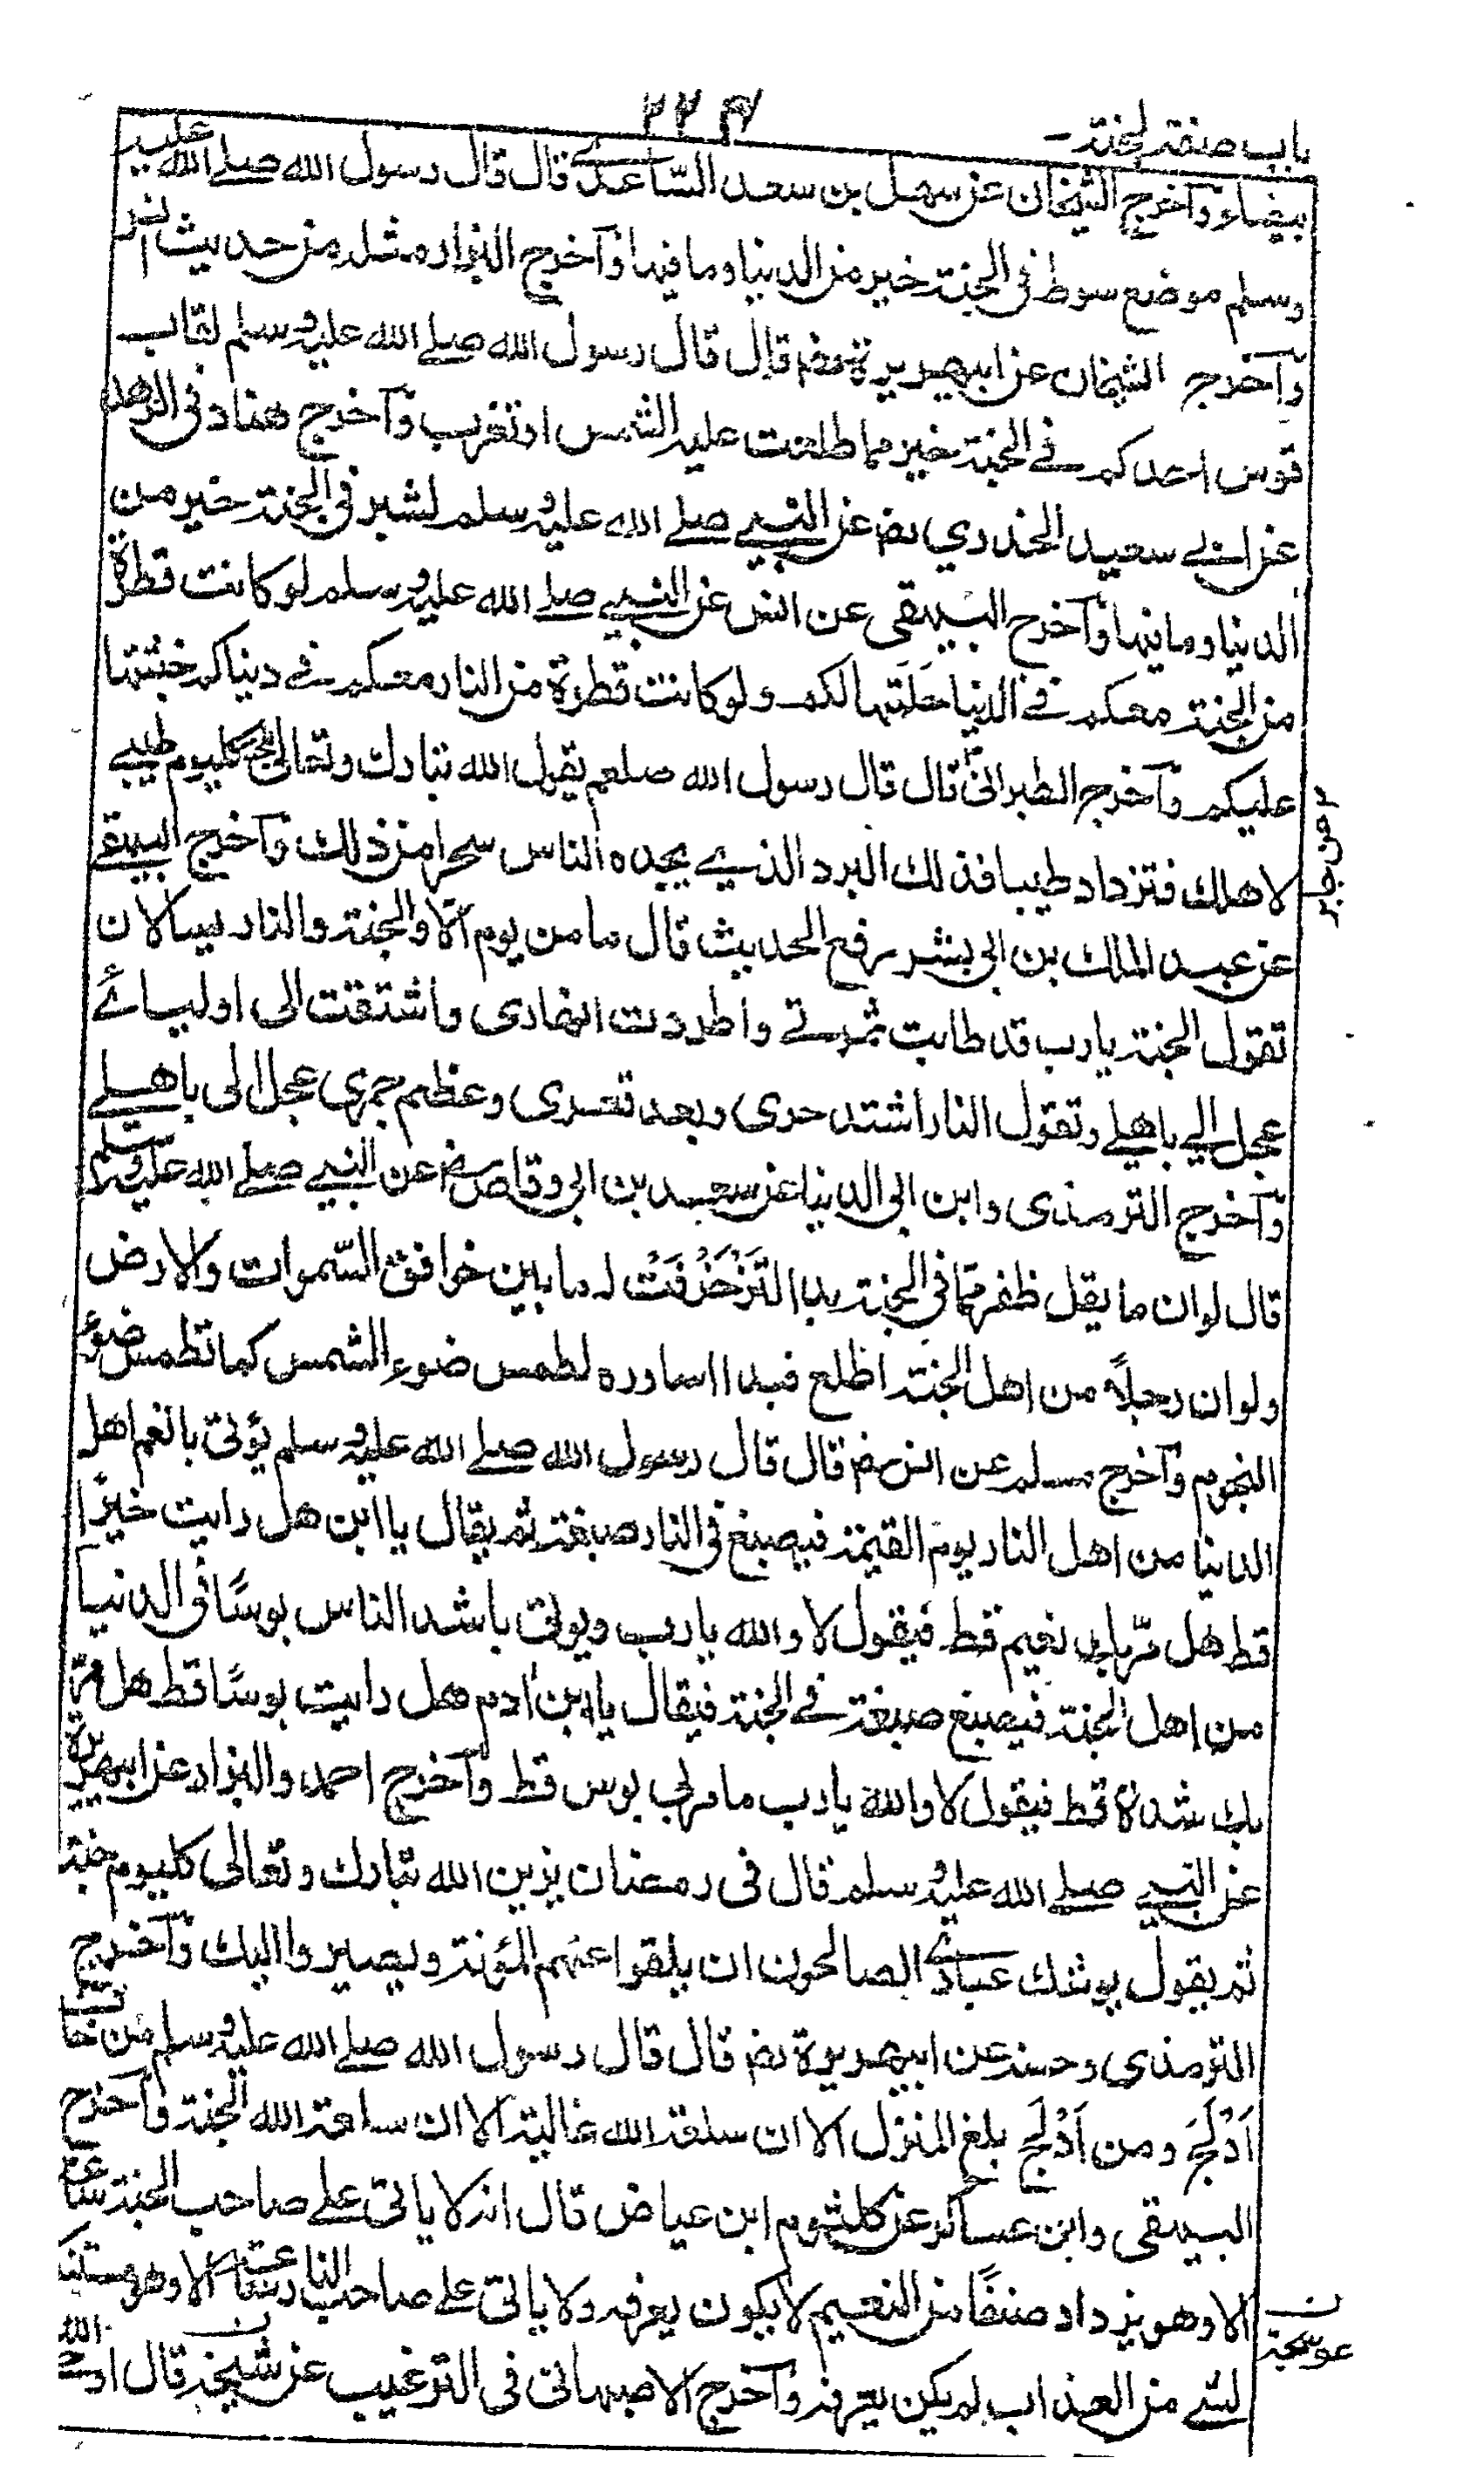 باب صفة الجنة
٢٢٤
بيضاء وآخرج الشيخان عن سهل بن سعد الساعدي قال قال رسول الله صلے الله عليه
وسلم موضع سوط فى الجنة خير من الدنيا وما فيها وآخرج البزار مثله من حديث انس
وآخرج الشيخان عن ابيهريرة رضـ قال قال رسول الله صلے الله عليه وسلم لقاب
قوس احدكم فے الجنة خير مما طلعت عليه الشمس اوتغرب وآخرج هناد فى الزهد
عن ابے سعيد الخدري رضـ عن النبے صلے الله عليه وسلم لشبر فى الجنة خير من
الدنيا وما فيها وآخرج البيهقى عن انس عن النبے صلے الله عليه وسلم لو كانت قطرة
من الجنة معكم فے الدنيا حَلَتها لكم ولو كانت قطرة من النار معكم فے دنياكم خبثتها
عليكم وآخرج الطبرانى قال قال رسول الله صلعم يقول الله تبارك وتعالى للجنة كليوم طيبے
عن جابر
لاهلك فتزداد طيبا فذلك البرد الذے يجده الناس سحرا من ذلك وآخرج البيهقے
عن عبد الملك بن ابى بشر رفع الحديث قال ما من يوم الا والجنة والنار يسالان
تقول الجنة يارب قد طابت ثمرتے واطردت انهارى واشتقت الى اوليائے
عجل الي باهلے وتقول النار اشتد حرى وبعد قعرى وعظم جمرى عجل الى باهلے
وآخرج الترمذى وابن ابى الدنيا عن سعد بن ابى وقاص رضـ عن النبے صلے الله عليه وسلم
قال لوان ما يقل ظفر مما فى الجنة بدا لتزخرفت له ما بين خوافق السموات والارض
ولوان رجلاً من اهل الجنة اطلع فبدا اساوره لطمس ضوء الشمس كما تطمس ضوء
النجوم وآخرج مسلم عن انس رضـ قال قال رسول الله صلے الله عليه وسلم يؤتى بانعم اهل
الدنيا من اهل النار يوم القيمة فيصبغ فى النار صبغة ثم يقال يا ابن هل رايت خيرًا
قط هل مر بك نعيم قط فيقول لا والله يارب ويوتى باشد الناس بوسًا فى الدنيا
من اهل الجنة فيصبغ صبغة فے الجنة فيقال يا ابن ادم هل رايت بوسًا قط هل مر
بك شدة قط فيقول لا والله يارب ما مر بى بوس قط وآخرج احمد والبزار عن ابيهريرة
عن النبے صلے الله عليه وسلم قال فى رمضان يزين الله تبارك وتعالى كليوم جنته
ثم يقول يوشك عبادے الصالحون ان يلقوا عنهم المؤنة ويصيروا اليك وآخرج
الترمذى وحسنه عن ابيهريرة رضـ قال قال رسول الله صلے الله عليه وسلم من خاف
اَدْلَجَ ومن اَدْلَجَ بلغ المنزل الا ان سلعة الله غالية الا ان سلعة الله الجنة وآخرج
البيهقى وابن عساكر عن كلثوم ابن عياض قال انه لا ياتى على صاحب الجنة ساعة
الا وهو يزداد صنفًا من النعيم لا يكون يعرفه ولا ياتى على صاحب النار ساعة الا وهو
لشے من العذاب لم يكن يعرفه وآخرج الاصبهانى فى الترغيب عن شيخه قال
ن
عوسجة